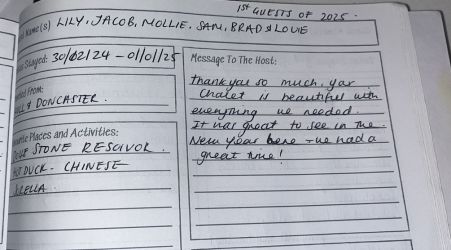 1st GUESTS OF 2025.
Name(s) LILY, JACOB, MOLLIE, SAM, BRAD & LOUIE
Stayed: 30/12/24 - 01/01/25
From:
& DONCASTER.
Places and Activities:
STONE RESOIVOR.
DUCK - CHINESE
Message To The Host:
thank you so much, your
Chalet is beautiful with
everything we needed.
It was great to see in the
New year here - we had a
great time!